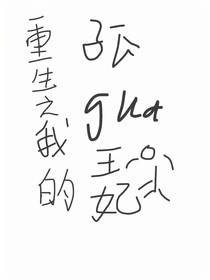 重生之我的
孤gua王妃